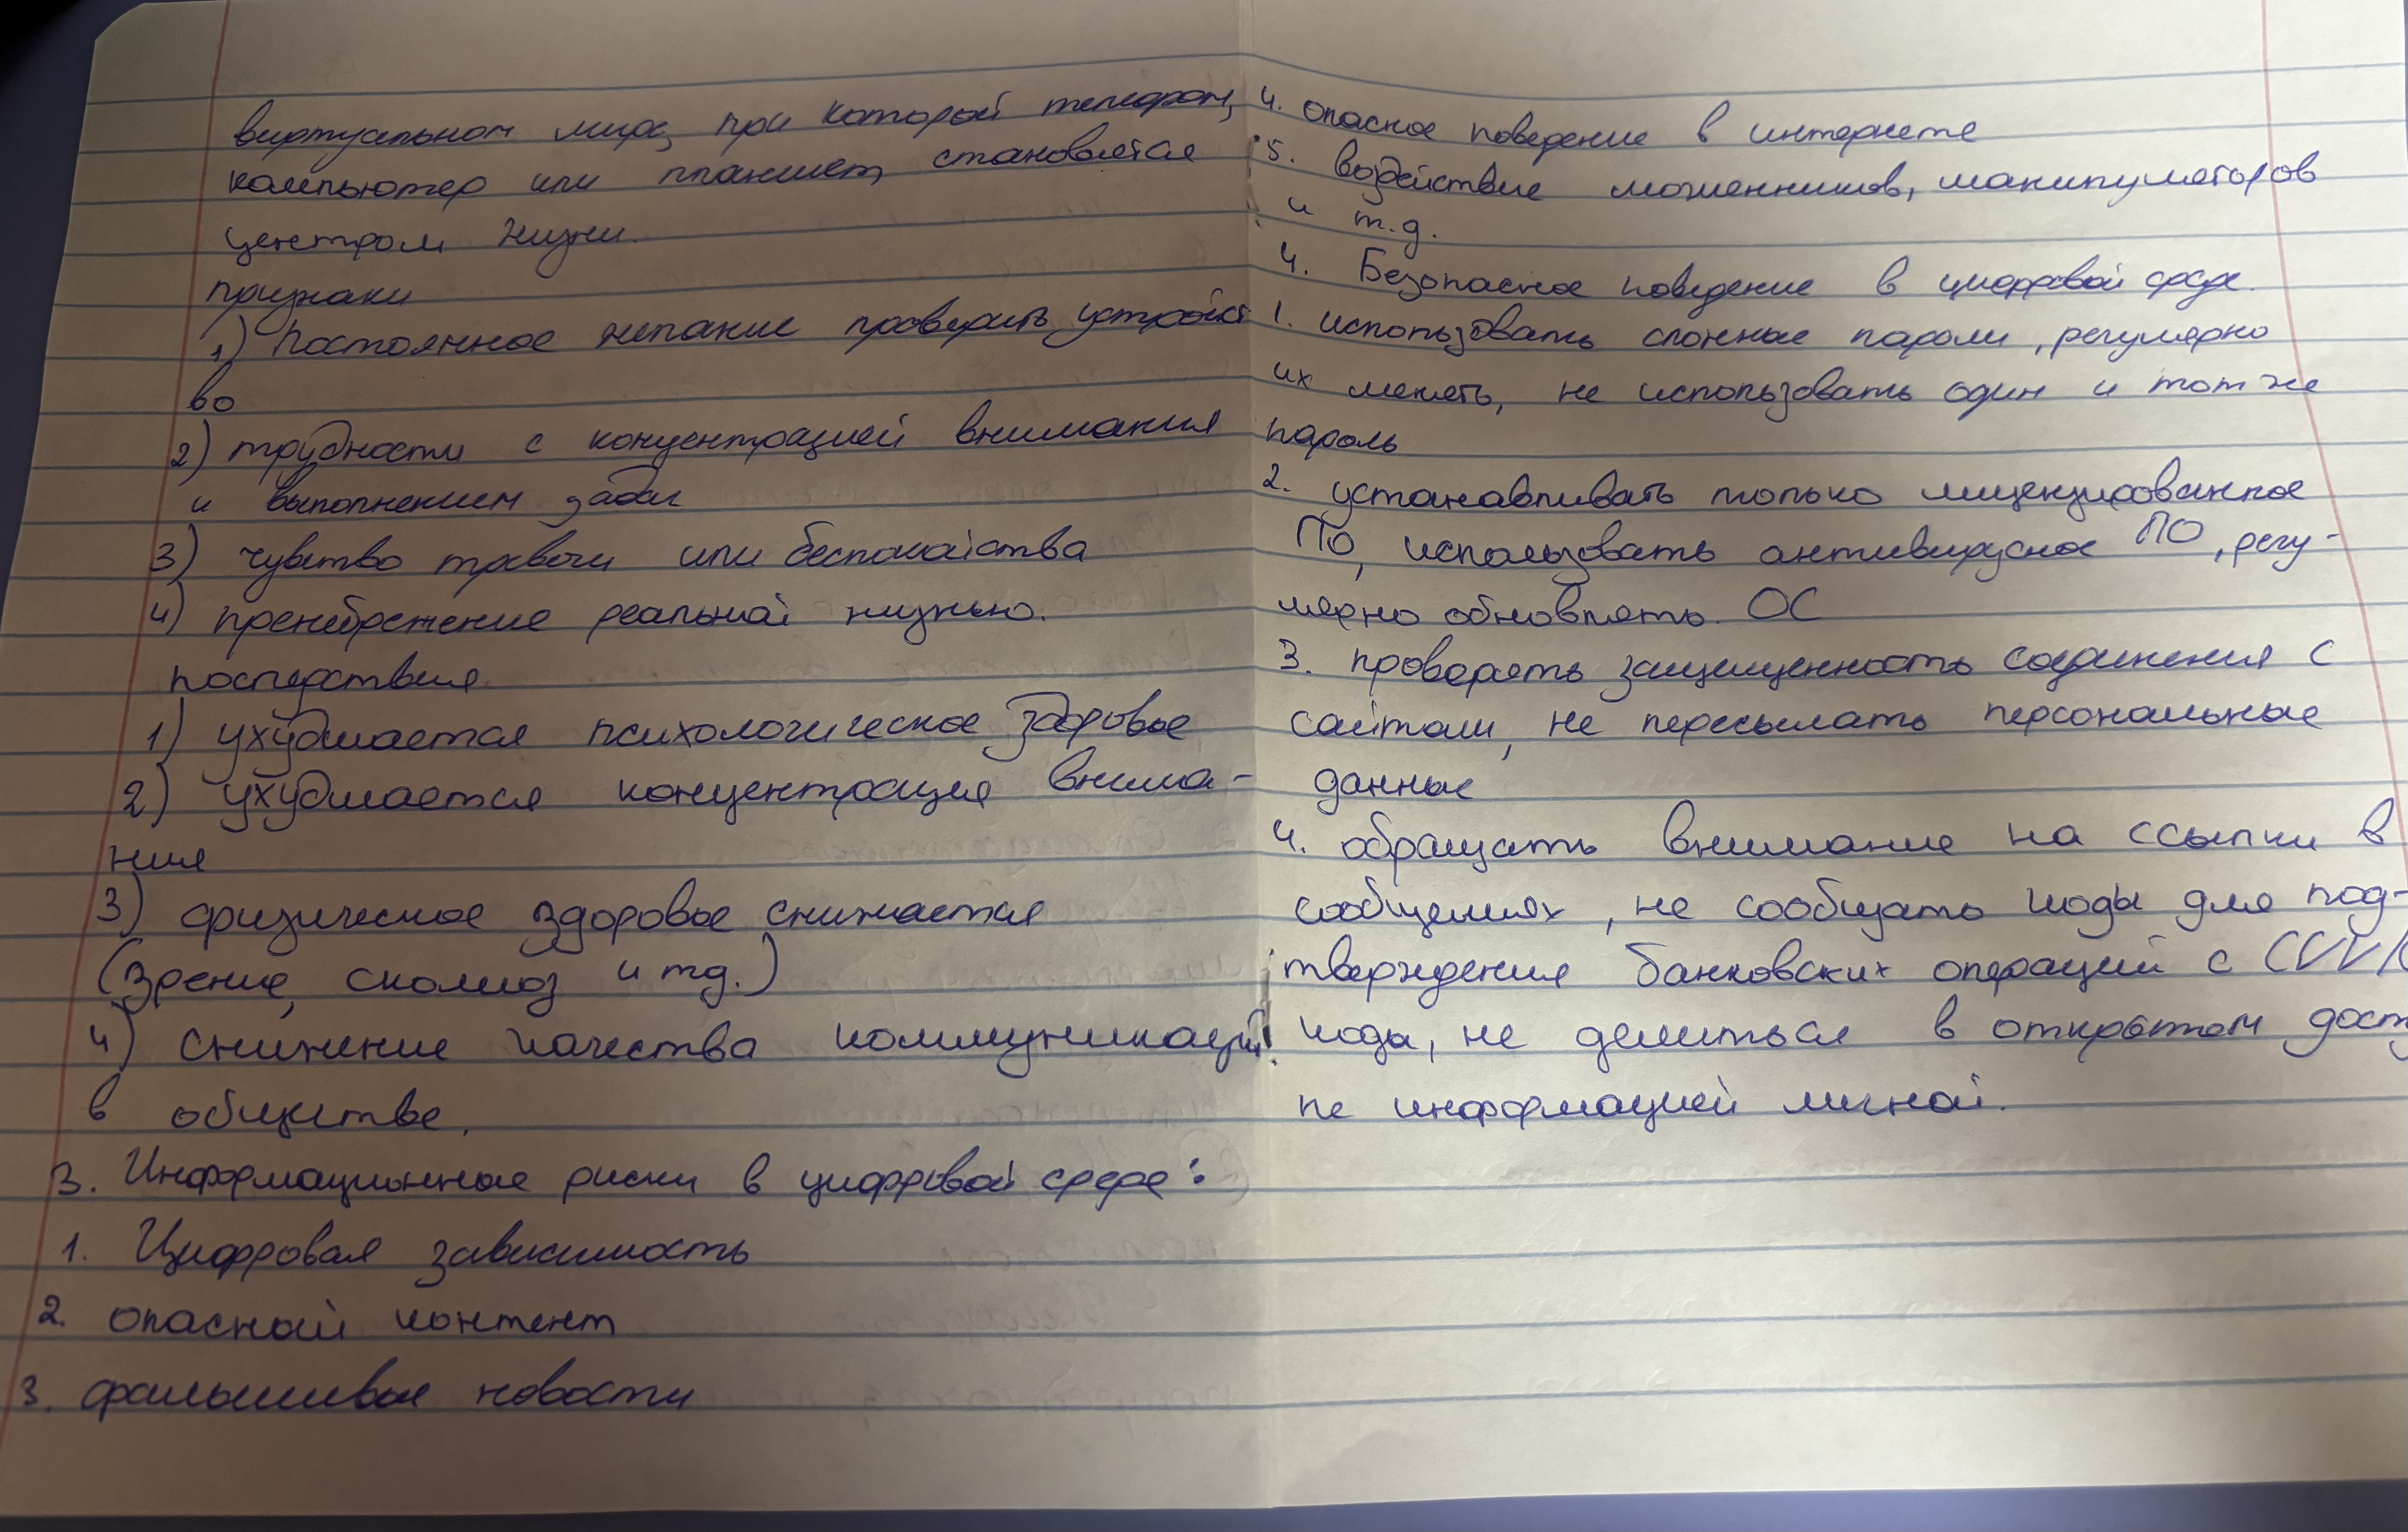 виртуальном мире, при которой телефон,
компьютер или планшет, становится
центром жизни.
признаки
1) Постоянное желание проверить устройст
во
2) трудности с концентрацией внимания
и выполнением задач
3) чувство тревоги или беспокойства
4) пренебрежение реальной жизнью.
последствия
1) ухудшается психологическое здоровье
2) ухудшается концентрация внима-
ния
3) физическое здоровье снижается
(зрение, сколиоз и тд.)
4) снижение качества коммуникаций
в обществе.
3. Информационные риски в цифровой среде:
1. Цифровая зависимость
2. опасный контент
3. фальшивые новости
4. опасное поведение в интернете
5. воздействие мошенников, манипуляторов
и т.д.
4. Безопасное поведение в цифровой среде.
1. использовать сложные пароли, регулярно
их менять, не использовать один и тот же
пароль
2. устанавливать только лицензированное
ПО, использовать антивирусное ПО, регу-
лярно обновлять ОС
3. проверять защищенность соединения с
сайтом, не пересылать персональные
данные
4. обращать внимание на ссылки в
сообщениях, не сообщать коды для под-
тверждения банковских операций с CVV/C
кода, не делиться в открытом дост
пе информацией личной.